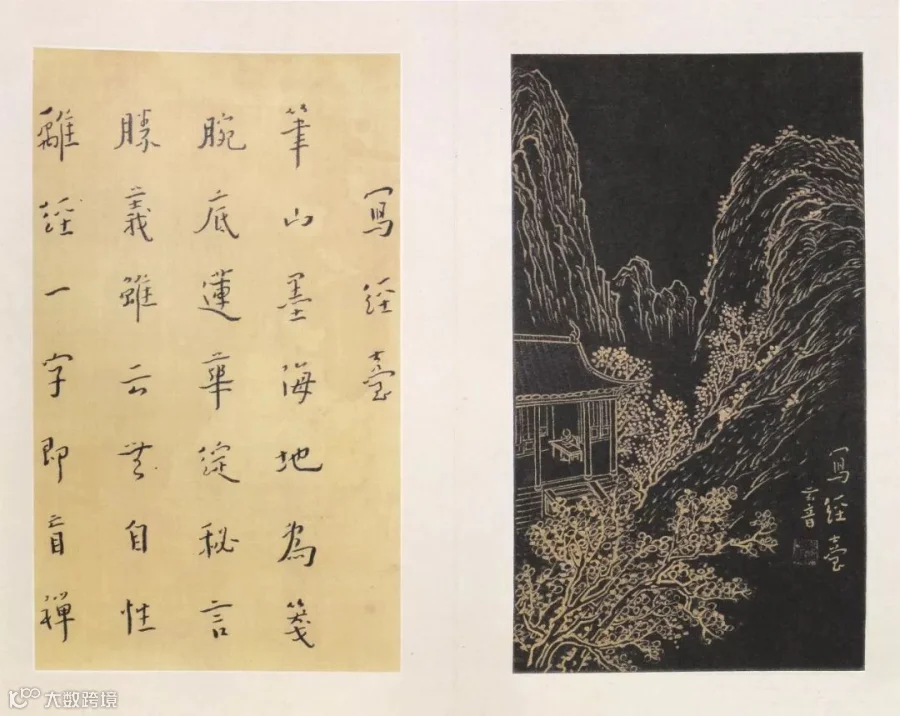 寫經臺
筆山墨海地為箋
腕底蓮華綻秘言
勝義雖云無自性
離經一字即盲禪
寫經臺
大数跨境